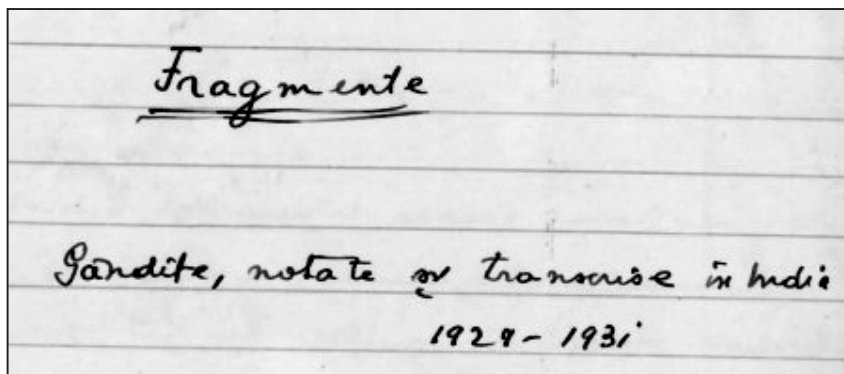 Fragmente
Gândite, notate și transcrise in India
1929-1931